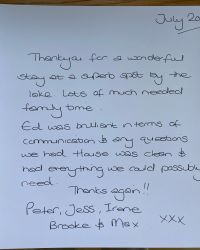 July 20
Thankyou for a wonderful
stay at a superb spot by the
lake. Lots of much needed
family time.
Ed was brilliant in terms of
communication & any questions
we had. House was clean &
had everything we could possibly
need.
Thanks again!!
Peter, Jess, Irene
Brooke & Max xxx